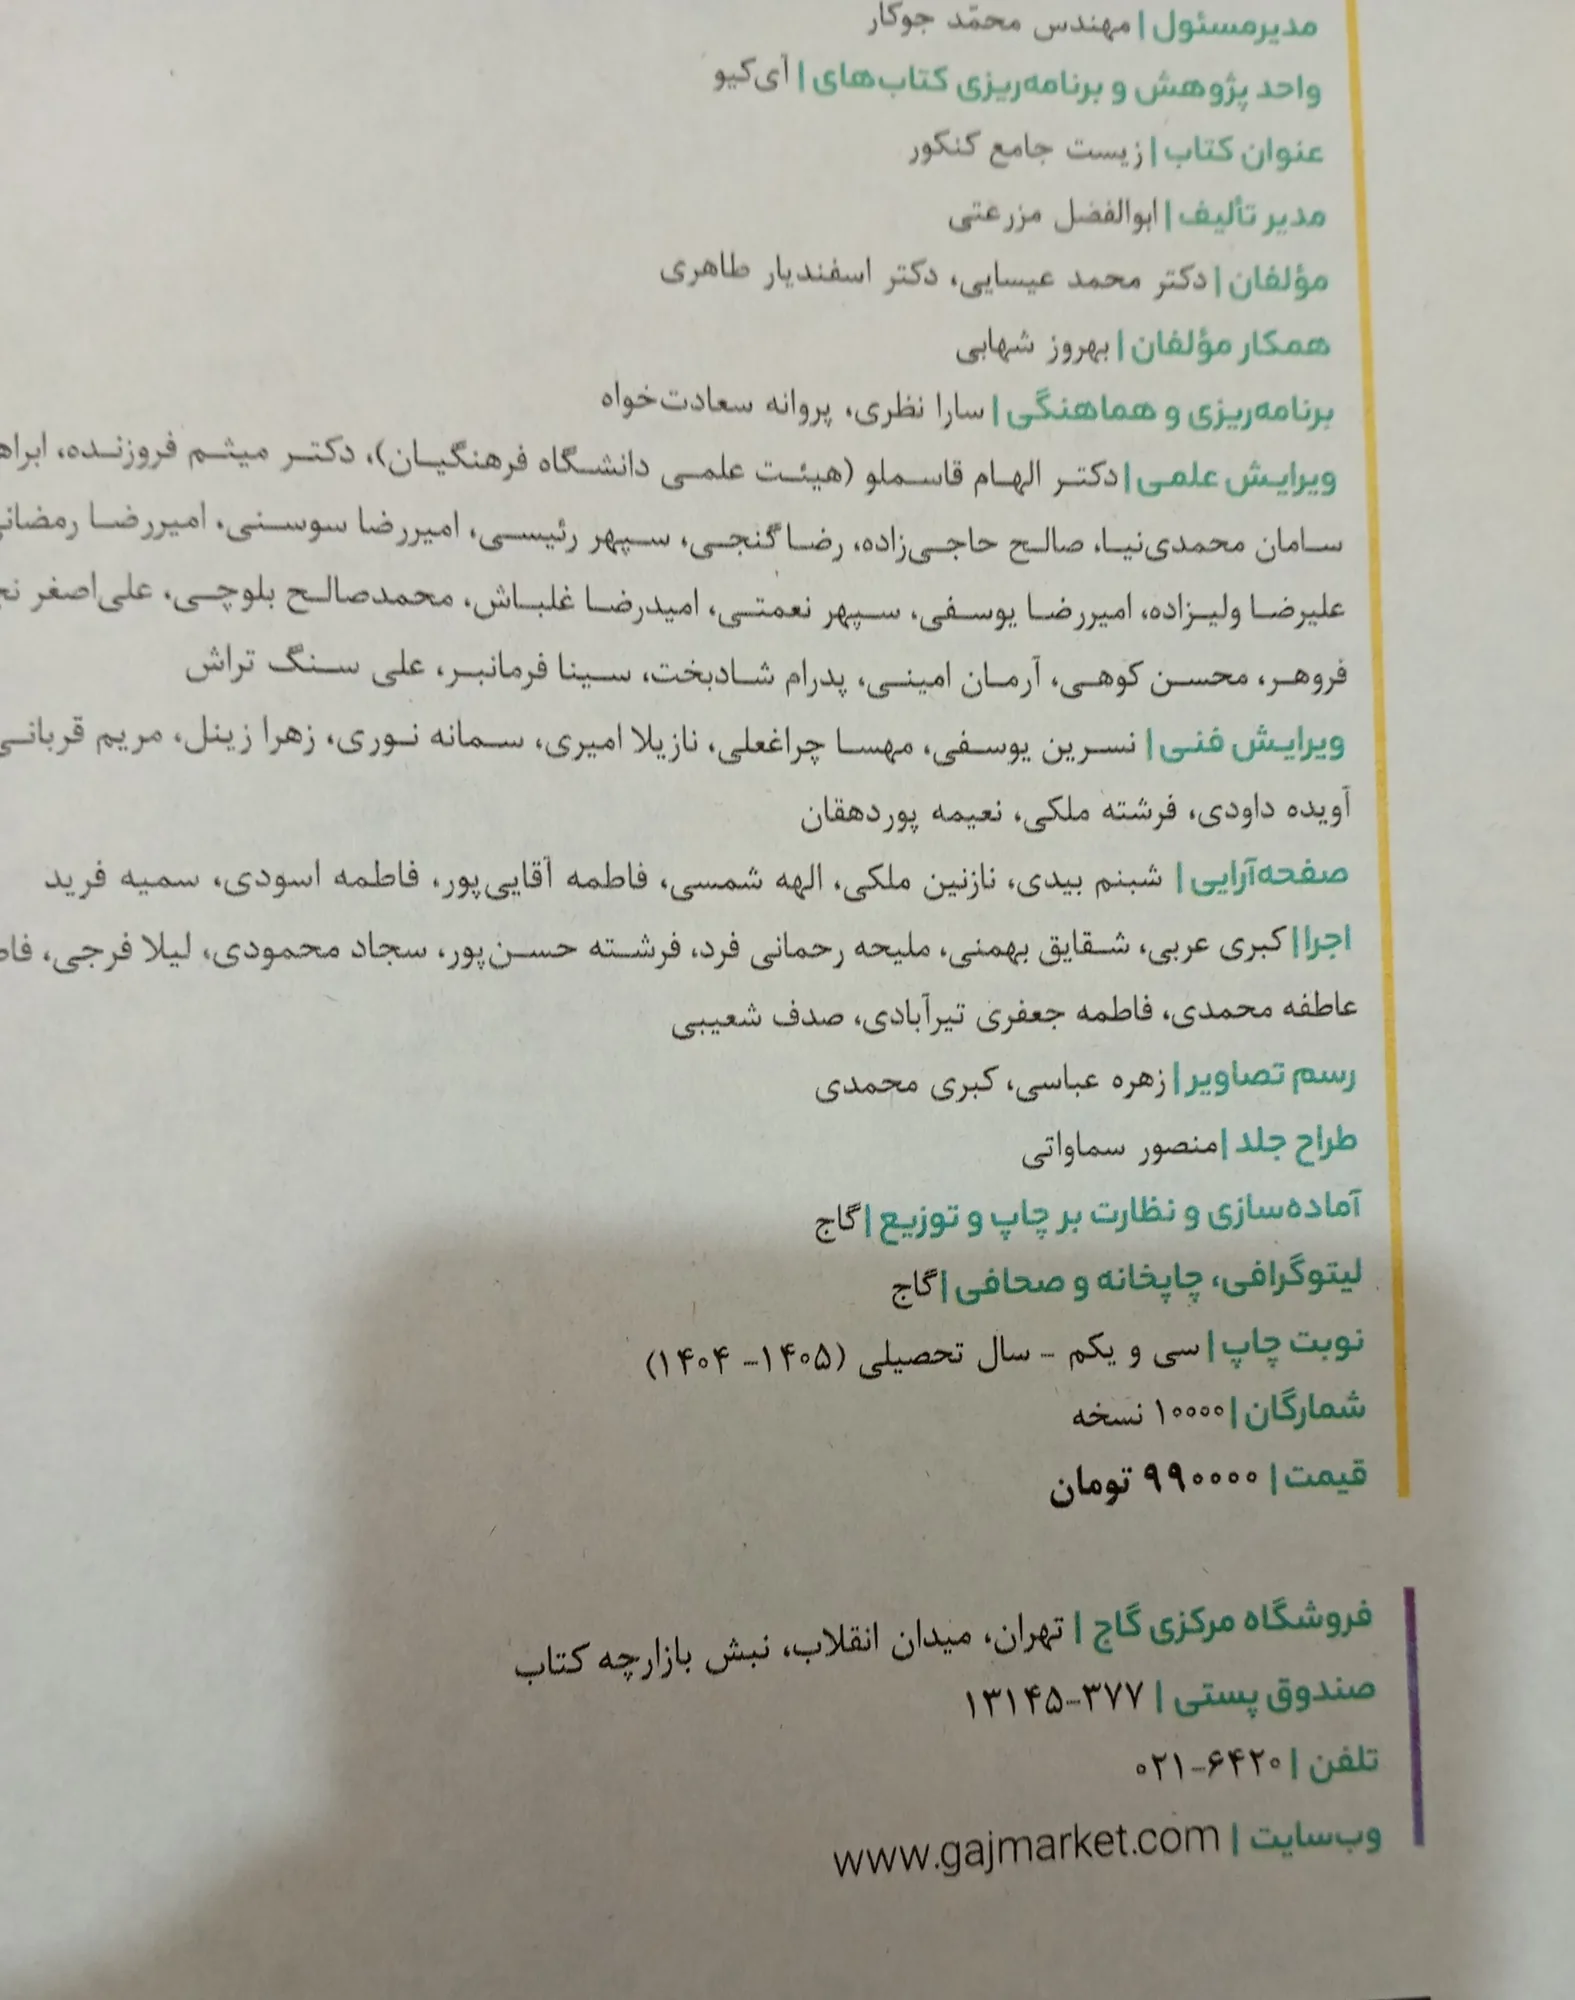 مدیرمسئول | مهندس محمّد جوکار
واحد پژوهش و برنامه‌ریزی کتاب‌های | آی‌کیو
عنوان کتاب | زیست جامع کنکور
مدیر تألیف | ابوالفضل مزرعتی
مؤلفان | دکتر محمد عیسایی، دکتر اسفندیار طاهری
همکار مؤلفان | بهروز شهابی
برنامه‌ریزی و هماهنگی | سارا نظری، پروانه سعادت‌خواه
ویرایش علمی | دکتر الهام قاسملو (هیئت علمی دانشگاه فرهنگیان)، دکتر میثم فروزنده،
سامان محمدی‌نیا، صالح حاجی‌زاده، رضا گنجی، سپهر رئیسی، امیررضا سوسنی، امیررضا
علیرضا ولیزاده، امیررضا یوسفی، سپهر نعمتی، امیدرضا غلباش، محمدصالح بلوچی، علی‌اصغر
فروهر، محسن کوهی، آرمان امینی، پدرام شادبخت، سینا فرمانبر، علی سنگ تراش
ویرایش فنی | نسرین یوسفی، مهسا چراغعلی، نازیلا امیری، سمانه نوری، زهرا زینل، مریم قربانی
آویده داودی، فرشته ملکی، نعیمه پوردهقان
صفحه‌آرایی | شبنم بیدی، نازنین ملکی، الهه شمسی، فاطمه آقایی‌پور، فاطمه اسودی، سمیه فرید
اجرا | کبری عربی، شقایق بهمنی، ملیحه رحمانی فرد، فرشته حسن‌پور، سجاد محمودی، لیلا فرجی،
عاطفه محمدی، فاطمه جعفری تیرآبادی، صدف شعیبی
رسم تصاویر | زهره عباسی، کبری محمدی
طراح جلد | منصور سماواتی
آماده‌سازی و نظارت بر چاپ و توزیع | گاج
لیتوگرافی، چاپخانه و صحافی | گاج
نوبت چاپ | سی و یکم - سال تحصیلی (۱۴۰۵- ۱۴۰۴)
شمارگان | ۱۰۰۰۰ نسخه
قیمت | ۹۹۰۰۰۰ تومان
فروشگاه مرکزی گاج | تهران، میدان انقلاب، نبش بازارچه کتاب
صندوق پستی | ۳۷۷-۱۳۱۴۵
تلفن | ۶۴۲۰-۰۲۱
وب‌سایت | www.gajmarket.com